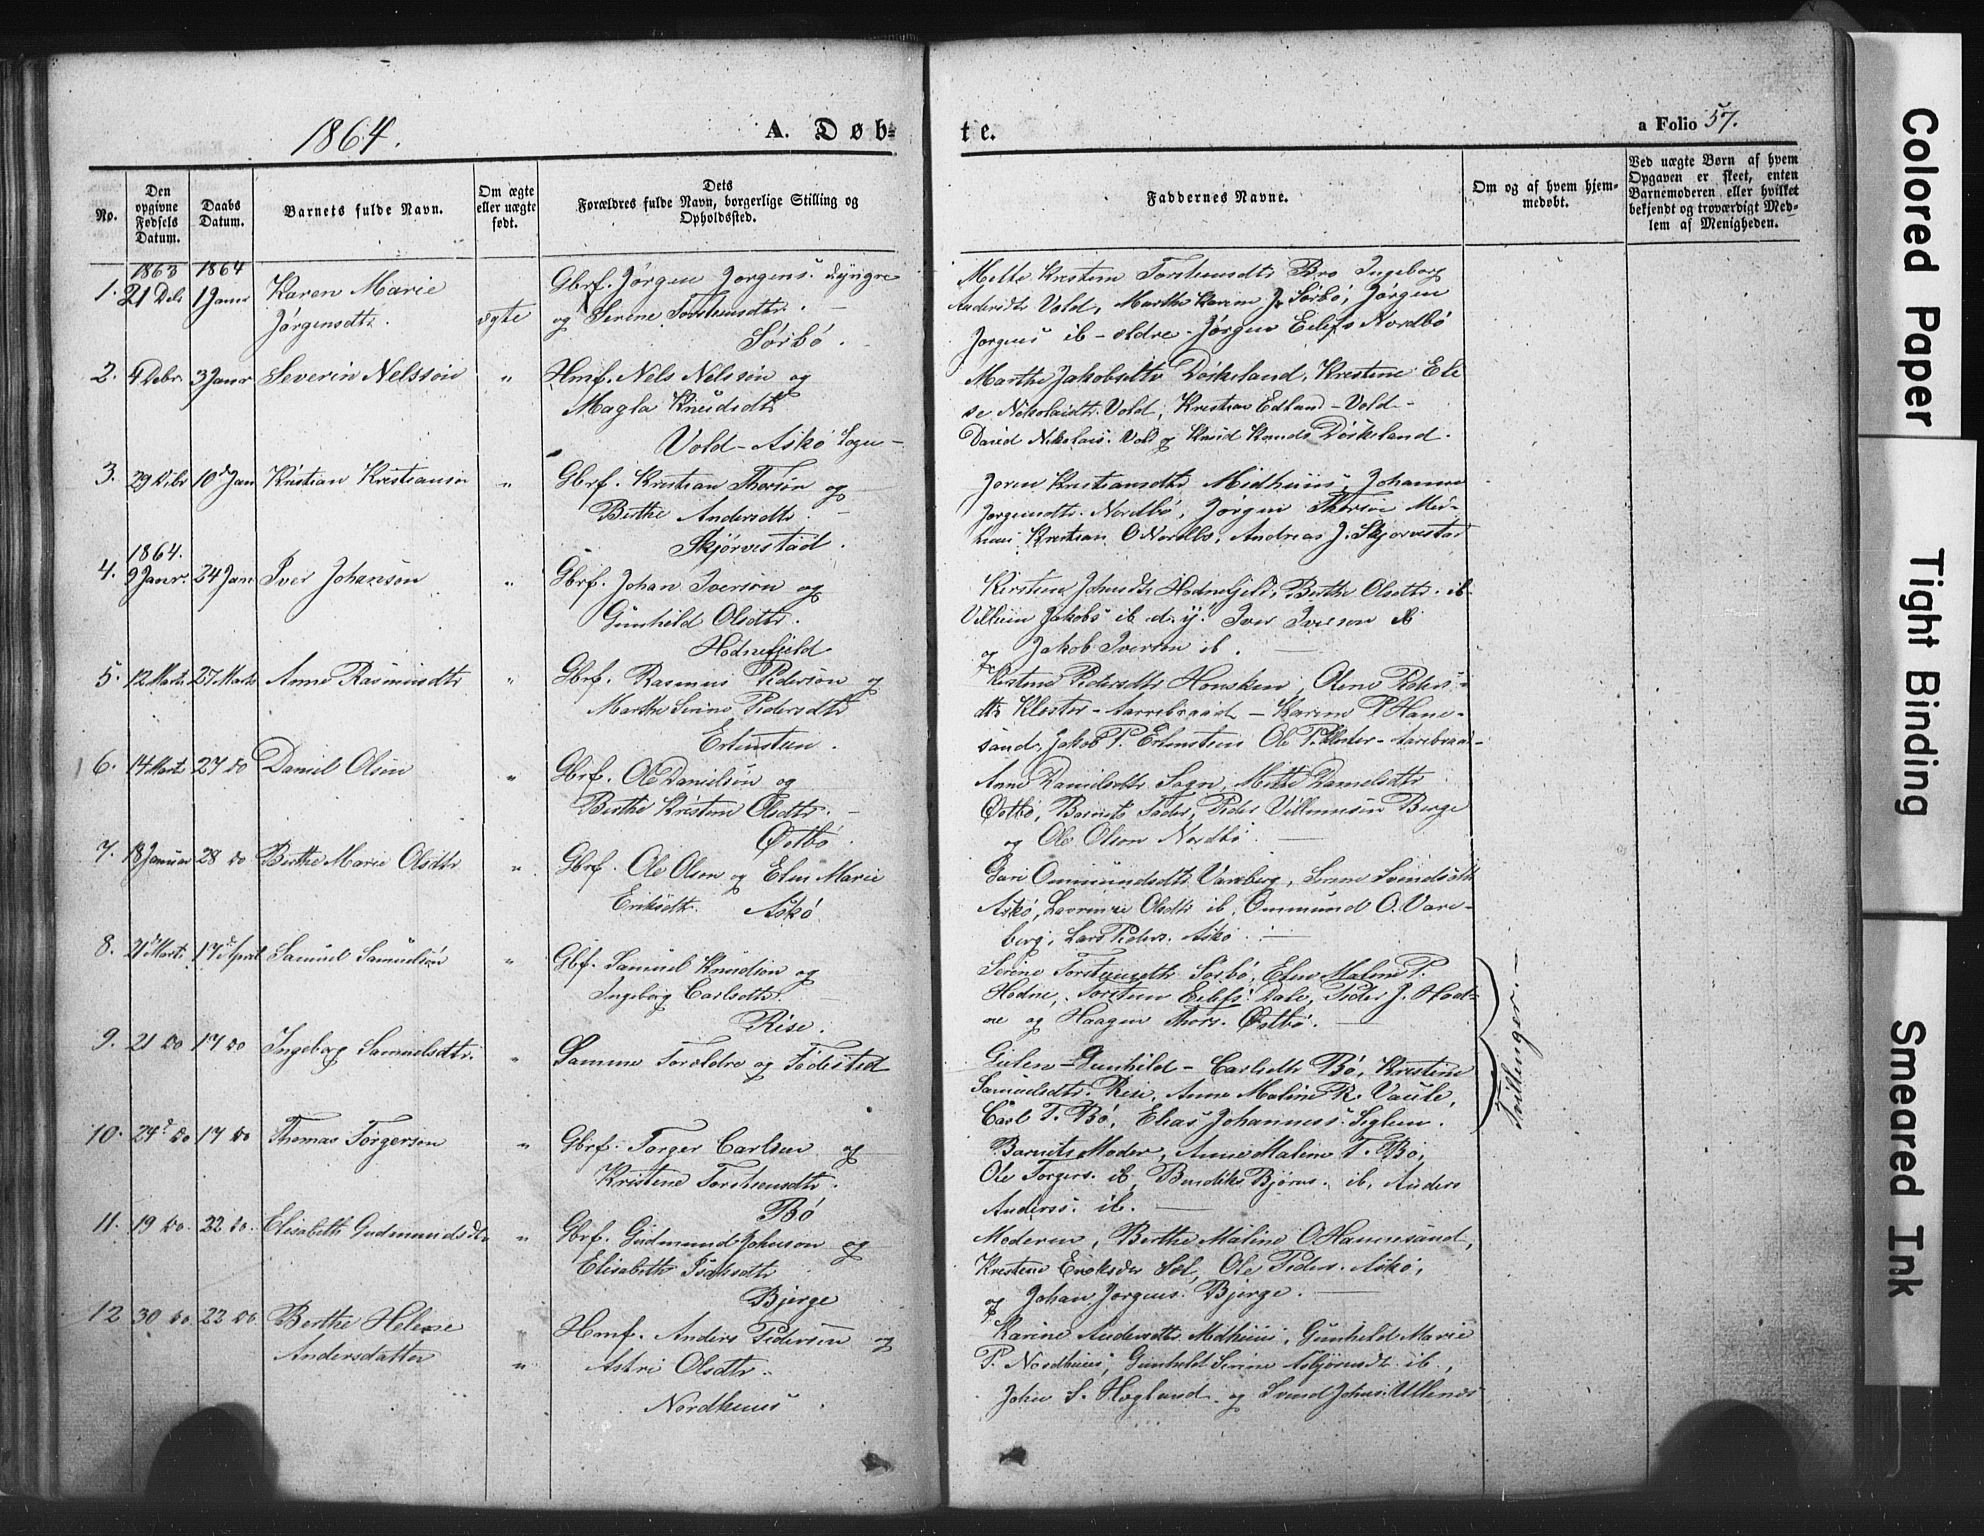 1864.
A. Døb-
te.
a Folio 57.
No.
Den
opgivne
Fødsels
Datum.
Daabs
Datum.
Barnets fulde Navn.
Om ægte
eller uægte
født.
Dets
Forældres fulde Navn, borgerlige Stilling og
Opholdssted.
Faddernes Navne.
Om og af hvem hjem-
medøbt.
Ved uægte Børn af hvem
Opgaven er skeet, enten
Barnemoderen eller hvilket
bekjendt og troværdigt Med-
lem af Menigheden.
1863 1864
1. 21 Debr 1 Janr Karen Marie
Jørgensdtr.
ægte
Gbrf. Jørgen Jørgens. dyngre
og Serine Torstensdtr.
Sørbø.
Mette Kristine Torstensdtr Bro Ingeborg
Andersdtr Vold, Marthe Karine J. Sørbø, Jørgen
Jørgens ib - ældre - Jørgen Eilefs Nordbø
2. 4 Debr 3 Janr Severin Nelssøn "
Hmf. Nels Nelssøn og
Magla Knudsdtr
Vold - Askø Sogn -
Marthe Jakobsdtr Døskeland, Kristine Eli
se Nikolaidtr. Vold, Kristian Edland - Vold -
David Nikolais. Vold og Knud Knuds Døskeland.
3. 29 Debr 10d Jan Kristian Kristiansøn "
Gbrf. Kristian Thorsøn og
Berthe Andersdtr.
Skjørvestad.
Joren Kristiansdtr Midhuus, Johanne
Jørgensdtr. Nordbø, Jørgen Thorsøn Mid-
huus, Kristian O Nordbø, Andreas J. Skjørvestad
1864.
4. 9 Janr. 24 Jan Iver Johansøn "
Gbrf. Johan Iversøn og
Gunhild Olsdtr.
Hodnefjeld
Hodnefjeld, Berthe Olsdtr. ib
Villum Jakobs ib d. y. Iver Iverson ib
og Jakob Iversøn ib.
5. 12 Marts 27 Marts Anne Rasmusdtr "
Gbrf. Rasmus Pedersøn og
Marthe Serine Pedersdtr
Erlensteen.
Kistene Pedersdtr Housken, Olene Peders-
dtr Kloster - Aarebraad - Karine P Hane-
sand, Jakob P. Erlensteen Ole P. Kloster - Aarebraad -
6. 14 Mart 27 do Daniel Olsen "
Gbrf. Ole Danielsøn og
Berthe Kristine Olsdtr.
Østbø.
Anne Danielsdtr. Sogn, Mette Danielsdtr
Østbø, Barnets Fader, Peder Villumsøn Berge
og Ole Olson Nordbø.
7. 18 Januar 28 do Berthe Marie Olsdtr "
Gbrf. Ole Olson og Elen Marie
Eriksdtr. Askø.
Guri Ommundsdtr. Vareberg, Serene Svendsdtr
Askø, Lavrense Olsdtr ib, Ommund O. Vare-
berg, Lars Peders. Askø.
8. 21d Marts 17d April Samuel Samuelsøn "
Gbf. Samuel Knudsøn og
Ingeborg Carlsdtr.
Rise.
Serine Torstensdtr. Sørbø, Elen Malene P.
Hodne, Torsten Eilefs. Dale, Peder J. Hod-
ne og Haagen Thors. Østbø.
9. 21 do 17 do Ingeborg Samuelsdtr. "
Samme Forældre og Fødested
Gunhild - Carlsdtr Bø, Kristine
Samuelsdtr. Rise, Anne Malene R. Vaule,
Carl T. Bø, Elias Johannes. Seglem.
Tvillinger. -
10. 24d do 17 do Thomas Torgerson "
Gbrf. Torger Carlsen og
Kristine Torstensdtr.
Bø
Barnets Moder, Anne Malene T. Bø,
Ole Torgers. ib, Bendiks Bjørns. ib, Anders
Anderss. ib.
11. 19 do. 22 do. Elisabeth Gudmundsdtr "
Gbrf. Gudmund Johnson og
Elisabeth Isaksdtr
Bjerge
Moderen, Berthe Malene O Hanesand,
Kristene Eriksdtr Sel, Ole Peders. Askø,
og Johan Jørgens. Bjerge.
12 30 do. 22 do. Berthe Helene
Andersdatter "
Hmf. Anders Pedersøn og
Astri Olsdtr.
Nordhuus.
Karine Andersdtr Midhuus, Gunhild Marie
P. Nordhuus, Gunhild Serine Asbjørnsdtr ib,
John S. Høgland og Svend Johns. Ullenes
Colored Paper
Tight Binding
Smeared Ink